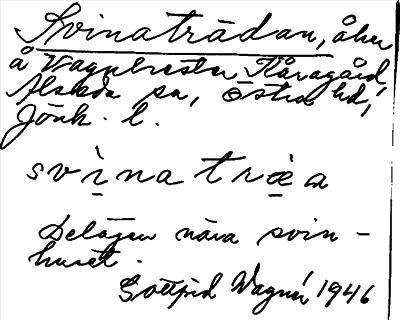 Svinaträdan, åker
å Wagnhester Kåragård,
Alseda sn, Östra hd,
Jönk. l.
svìnatrǣa
belägen nära svin-
huset.
Gottfrid Wagnér 1946